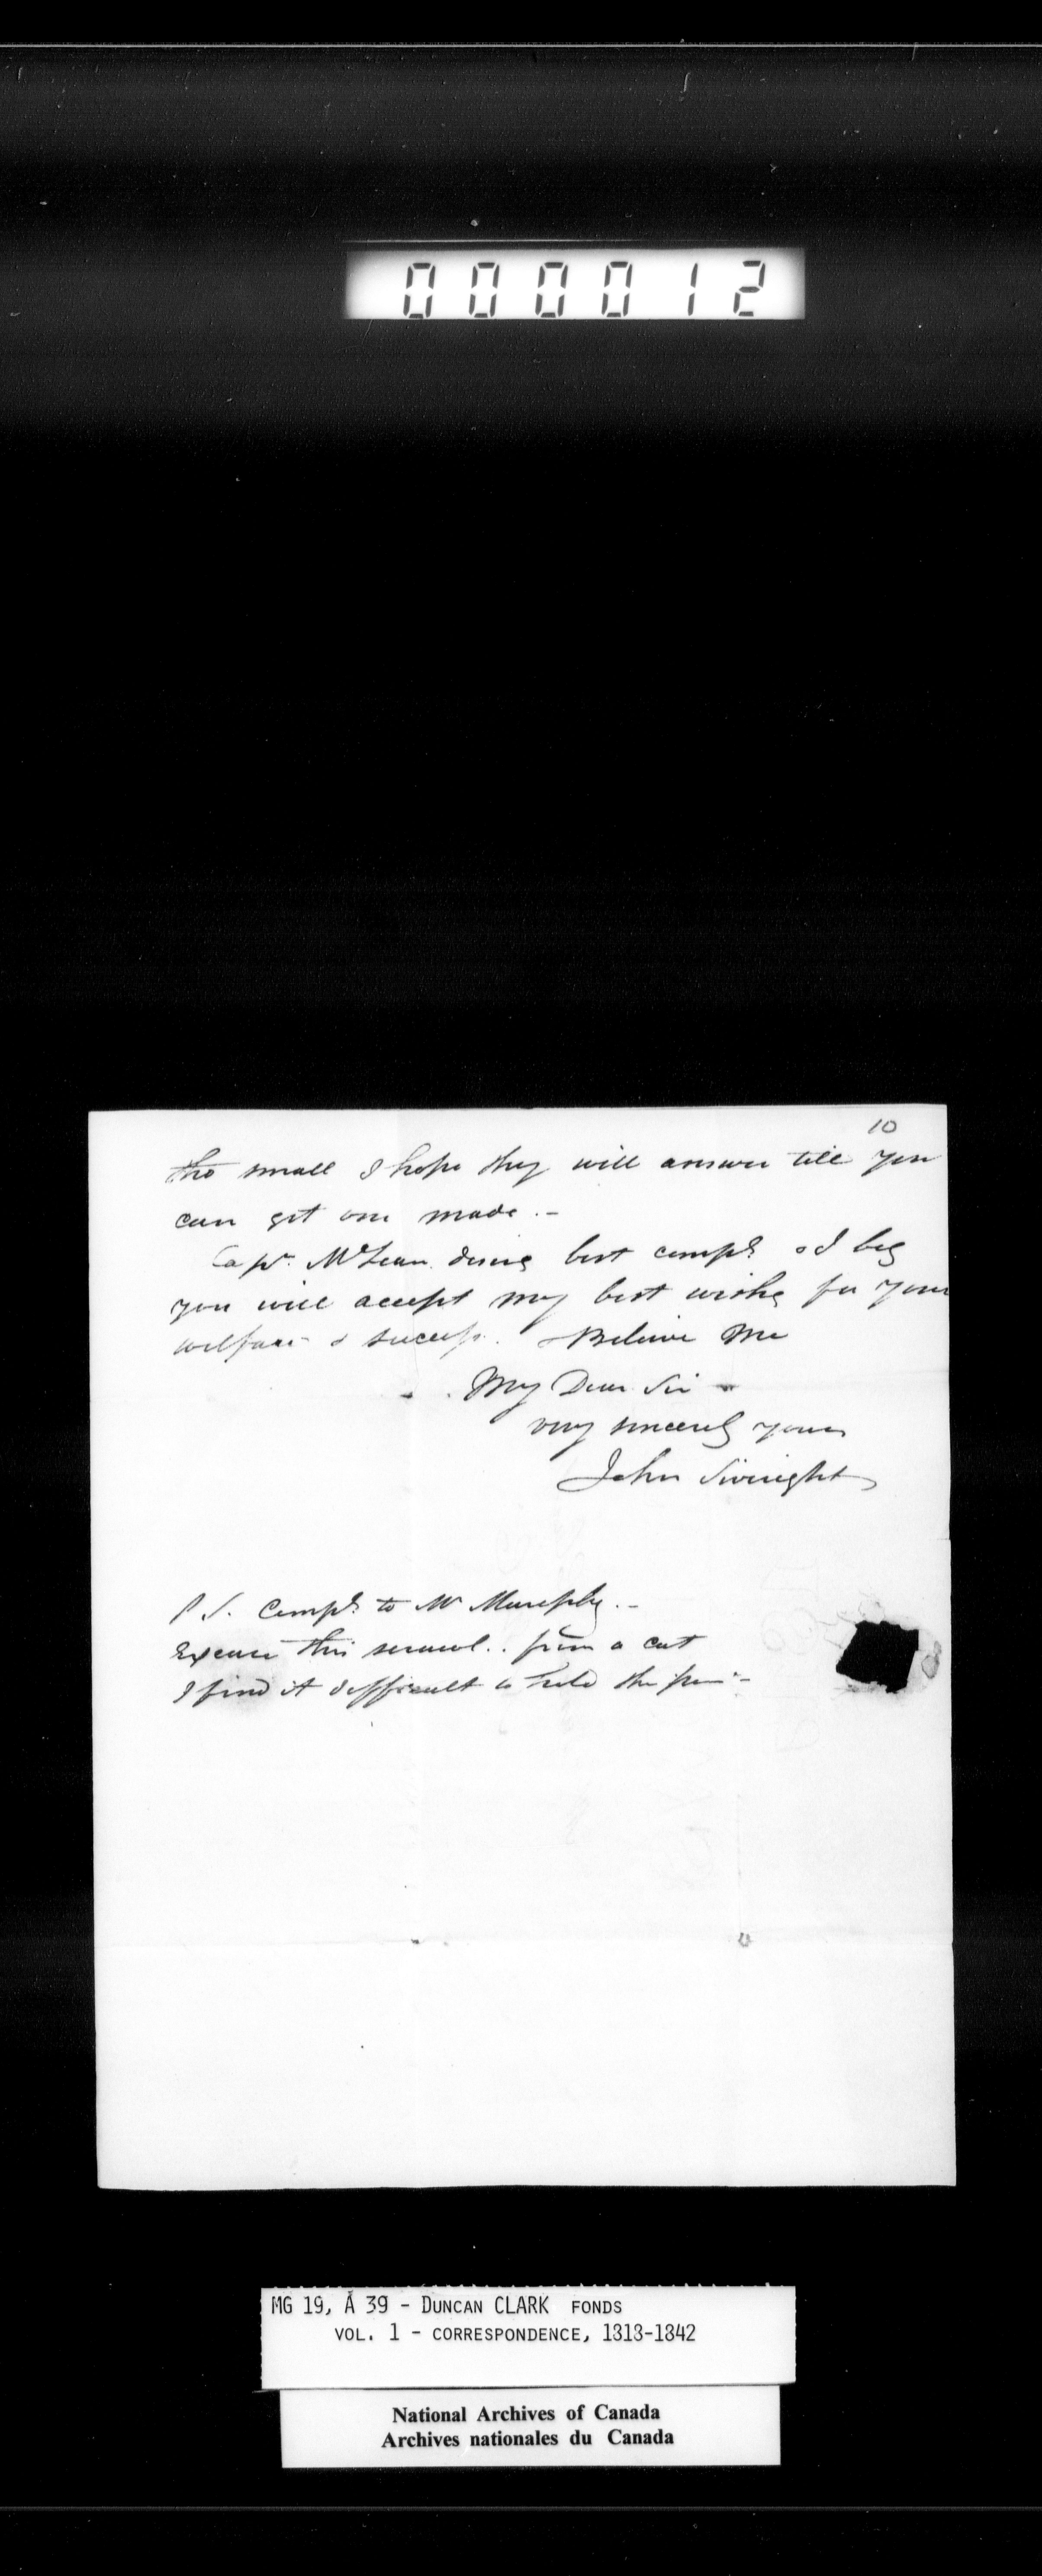 000012
10
tho small I hope they will answer till you
can get one made. -
Capn. McLean desires best compts. & I beg
you will accept my best wishes for your
welfare & success. & Believe Me
My Dear Sir
very sincerely yours
John Siveright
P.S. Compts. to Mr
Excuse this scrawl.. from a cut
I find it difficult to hold the pen -
MG 19, A 39 - DUNCAN CLARK FONDS
VOL. 1 - CORRESPONDENCE, 1813-1842
National Archives of Canada
Archives nationales du Canada